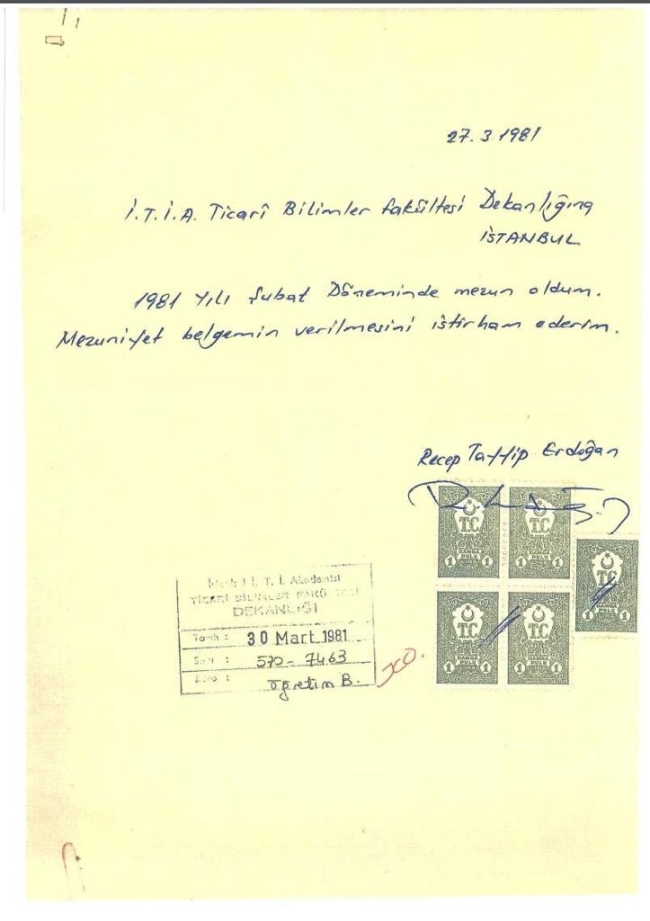 27.3.1981
İ.T.İ.A. Ticarî Bilimler fakültesi Dekanlığına
İSTANBUL
1981 Yılı Şubat Döneminde mezun oldum.
Mezuniyet belgemin verilmesini istirham ederim.
Recep Tayyip Erdoğan
T.C T.C
1 1 1 1
T.C
1 1
T.C T.C
1 1 1 1
İ. T. İ. Akademisi
TİCARİ BİLİMLER FAKÜ
DEKANLIĞI
Tarih : 30 Mart 1981
Sayı : 570-7463
Büro : öğretim B.